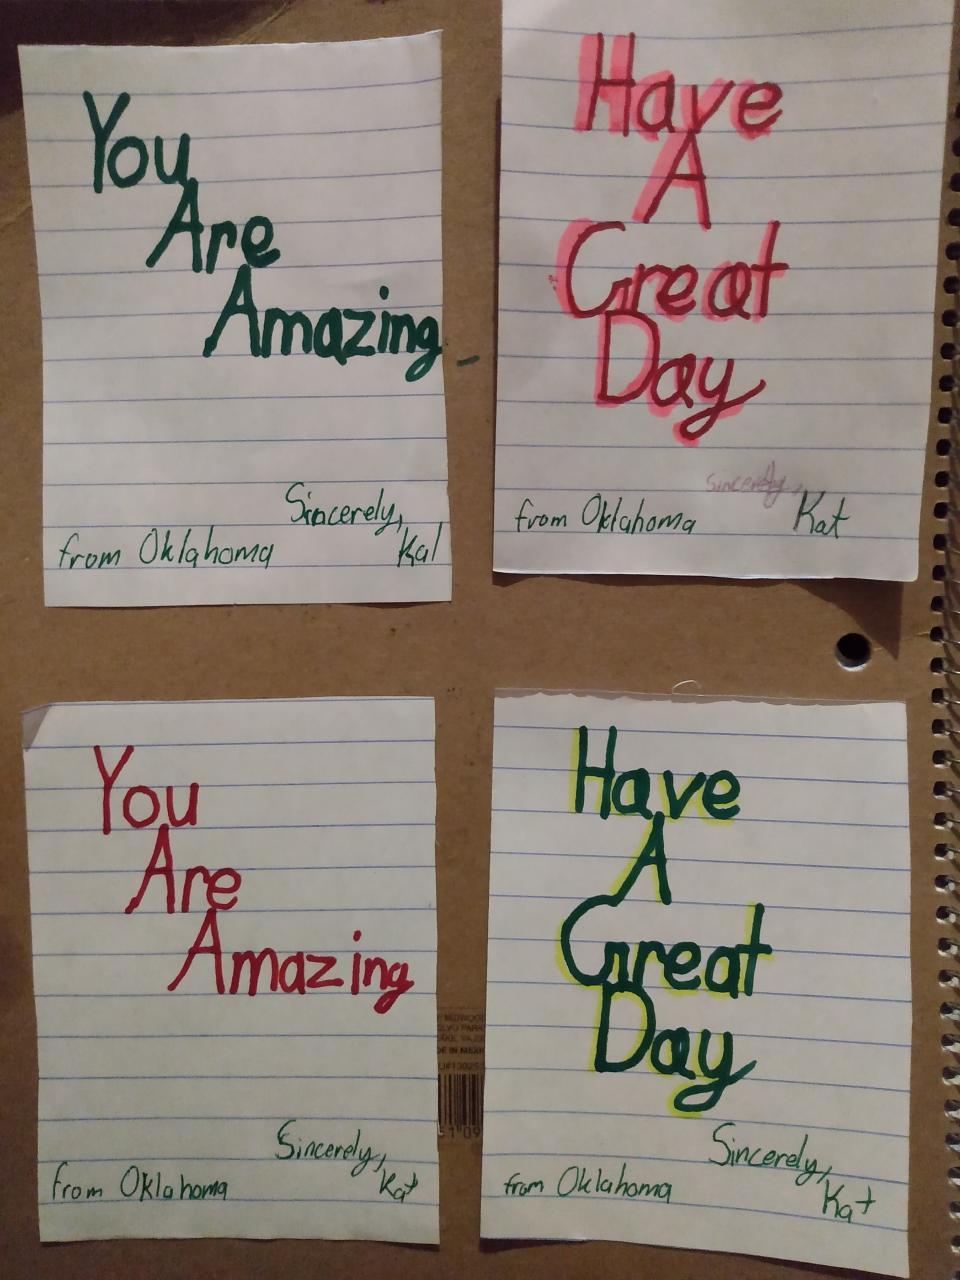 You
Are
Amazing
Sincerely,
from Oklahoma
Kal
Have
A
Great
Day
sincerely,
from Oklahoma
Kat
You
Are
Amazing
Sincerely,
from Oklahoma
Kat
Have
A
Great
Day
Sincerely,
from Oklahoma
Kat